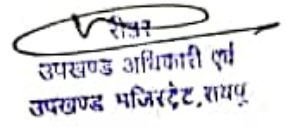 रीडर
उपखण्ड अधिकारी एवं
उपखण्ड मजिस्ट्रेट, रायपु